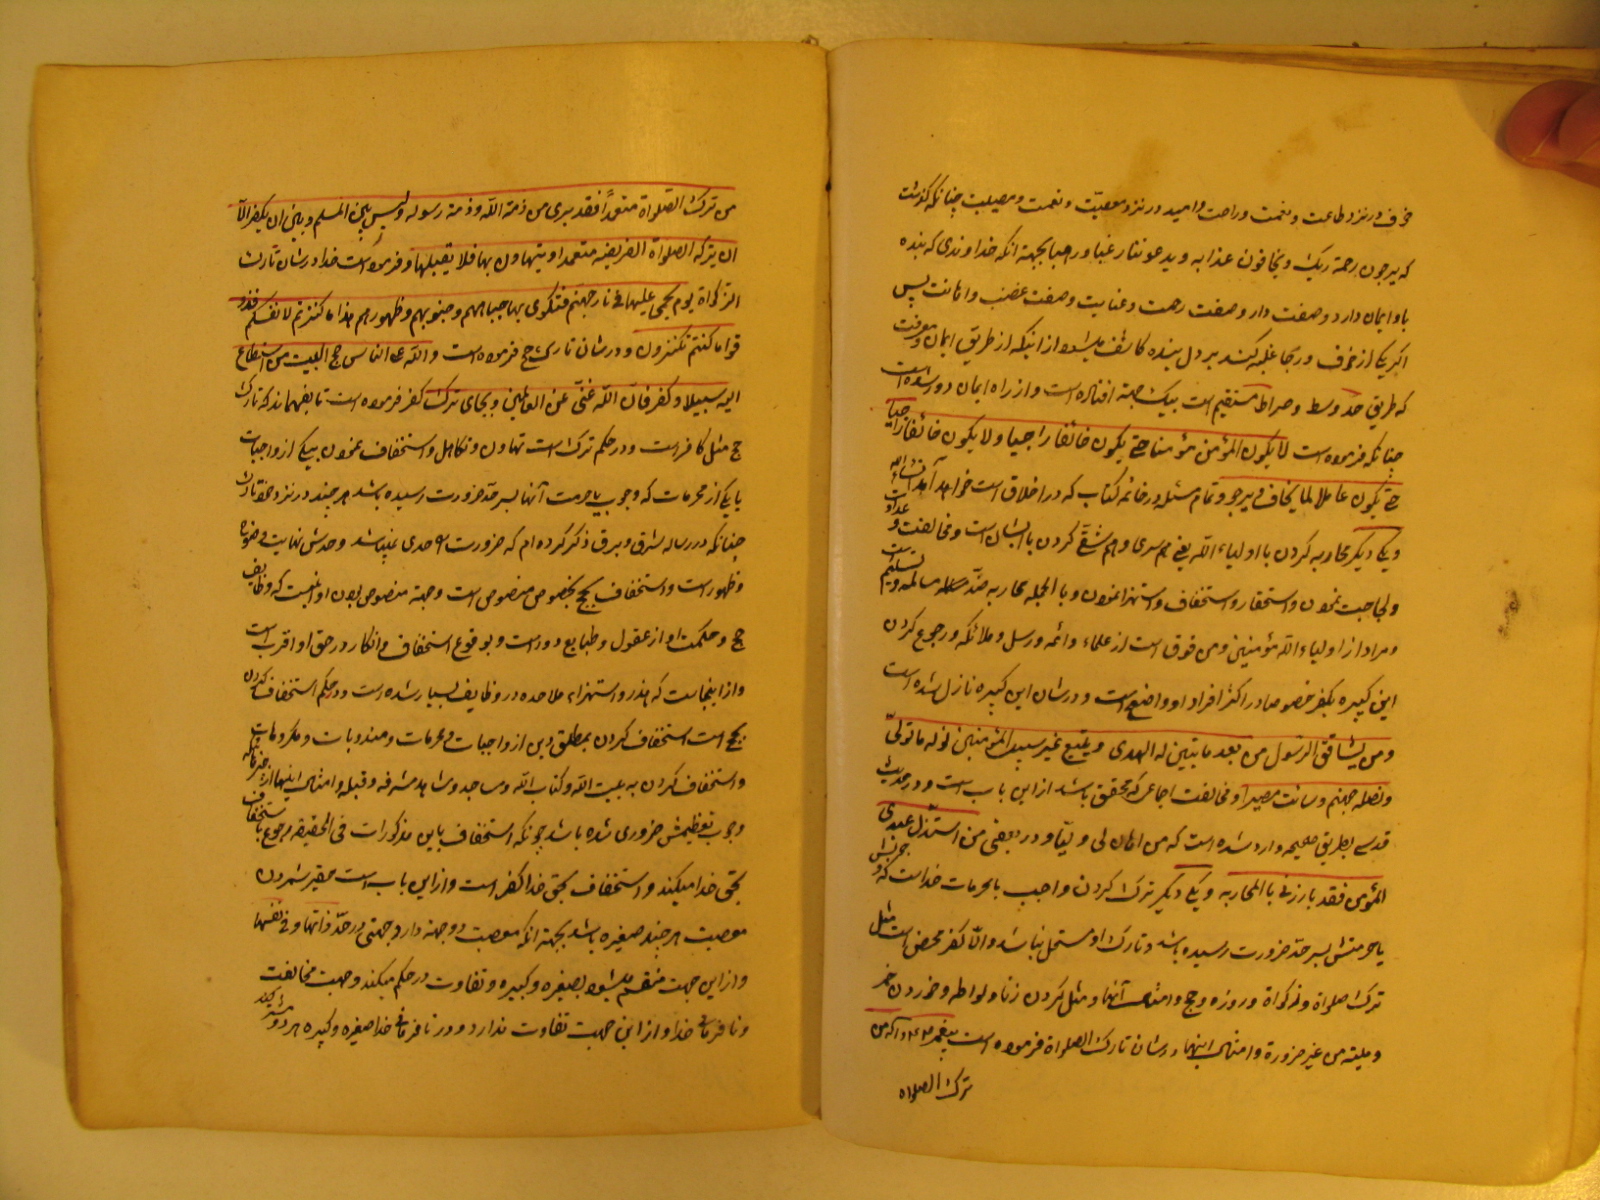 خوف در نزد طاعت و نعمت و راحت و امید در نزد معصیّت و نقمت و مصیبت چنانکه گذشت
که یرجون رحمة ربک و یخافون عذابه و یدعوننا رغبا و رهبا بجهة انکه خداوندی که بنده
باو ایمان دارد و صفت دارد صفت رحمت و عنایت و صفت غضب و اهانت پس
اکر یکی از خوف و رجا غلبه کند بر دل بنده کاشف میشود از اینکه از طریق ایمان و معرفت
که طریق حد وسط و صراط مستقیم است بیک جهة افتاده است و از راه ایمان دور شده است
چنانکه فرموده است لا یکون المؤمن مؤمنا حتی یکون خائفا راجیا و لا یکون خائفا راجیا
حتی یکون عاملا لما یخاف و یرجو و تمام مسئله در خاتمه کتاب که در اخلاق است خواهد آمد انشاء الله
و یکی دیگر محاربه کردن با اولیاء الله یعنی همسری و هم شقّی کردن با ایشان است و مخالفت و عداوت
و لجاجت نمودن و استحقار و استخفاف و استهزا نمودن و با الجمله محاربه ضدّ مسالمه و تسلیم است
و مراد از اولیاء الله مؤمنین و من فوق است از علماء و ائمه و رسل و ملائکه و رجوع کردن
این کبیره بکفر خصوصا در اکثر افراد او واضح است و در شان این کبیره نازل شده است
و من یشاقق الرّسول من بعد ما تبیّن له الهدی و یتّبع غیر سبیل المؤمنین نولّه ما تولّی
و نصله جهنم و سائت مصیرا و مخالفت اجماعی که محقق باشد از این باب است و در حدیث
قدسی بطریق صحیحه وارد شده است که من اهان لی ولیّا و در بعضی من استذلّ عبدی
المؤمن فقد بارزنی با المحاربه و یکی دیگر ترک کردن واجب یا محرمات خداست که وجوبش
یا حرمتش بسر حدّ ضرورت رسیده باشد و تارک او مستحل نباشد و الّا کفر محض است مثل
ترک صلواة و زکواة و روزه و حج و امثال آنها و مثل کردن زنا و لواطه و خوردن خمر
و میته من غیر ضرورة و امثال اینها در شان تارک الصلواة فرموده است پیغمبر که من
ترک الصلواه
من ترک الصّلواة متعمّداً فقد بری من ذمة الله و ذمة رسوله و لیس بین المسلم و بین ان یکفر الّا
ان یترک الصلواة الفریضه متعمدا او یتهاون بها فلا یصلیها و فرموده است خدا در شان تارک
الزکواة یوم یحمی علیها فی نار جهنم فتکوی بها جباههم و جنوبهم و ظهورهم هذا ما کنزتم لانفسکم فذو
قوا ما کنتم تکنزون و در شان تارک حج فرموده است و لله علی الناس حج البیت من استطاع
الیه سبیلا و من کفر فان الله غنیّ عن العالمین و بجای ترک کفر فرموده است تا بفهماند که تارک
حج مثل کافر است و در حکم ترک است تهاون و تکاهل و استخفاف نمودن بیکی از واجبات
یا یکی از محرمات که وجوب یا حرمت آنها بسر حدّ ضرورت رسیده باشد هر چند در نزد
چنانکه در رساله شرق و برق ذکر کرده ام که ضرورت را حدی نمیباشد و حدش نهایت وضوح
و ظهور است و استخفاف بحج بخصوص منصوص است و جهة منصوص بودن او اینست که وظایف
حج و حکمت او از عقول و طبایع دور است و بوقوع استخفاف و انکار در حق او اقرب است
و از اینجاست که هذر و استهزاء ملاحده در وظایف بسیار شده است و در حکم استخفاف کردن
بحج است استخفاف کردن بمطلق دین از واجبات و محرمات و مندوبات و مکروهات
و استخفاف کردن به بیت الله و کتاب الله و مساجد و مشاهد مشرفه و قبله و امثال اینها از چیزهائیکه
وجوب تعظیمش ضروری شده باشد چونکه استخفاف باین مذکورات فی الحقیقه مرجوع باستخفاف
بحق خدا میکند و استخفاف بحق خدا کفر است و از این باب است حقیر شمردن
معصیت هر چند صغیره باشد بجهة انکه معصیت دو جهة دارد جهتی در حدّ ذاتها و فی نفسها
و از این جهت منقسم میشود بصغیره و کبیره و تفاوت در حکم میکند و جهت مخالفت
و نافرمانی خدا و از این جهت تفاوت ندارد و در نافرمانی خدا صغیره و کبیره هر دو شریکند